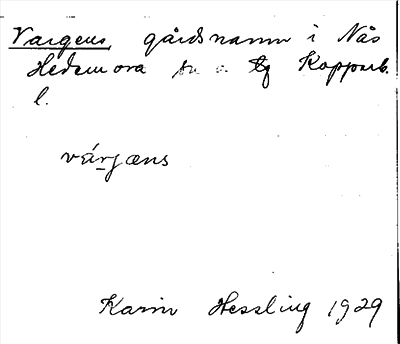 Vargens, gårdsnamn i Nås
Hedemora sn o. tg Kopparb.
l.
várgæns
Karin Hessling 1929